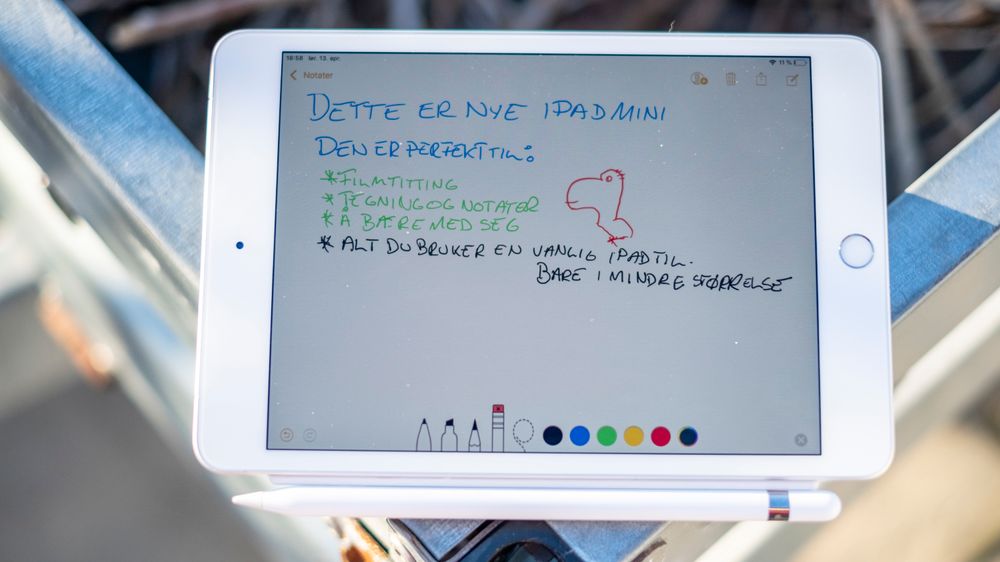 18:58 lør. 13. apr.
11 %
Notater
DETTE ER NYE IPAD MINI
DEN ER PERFEKT TIL:
*FILMTITTING
*TEGNING OG NOTATER
*Å BÆRE MED SEG
* ALT DU BRUKER EN VANLIG IPAD TIL.
BARE I MINDRE STØRRELSE